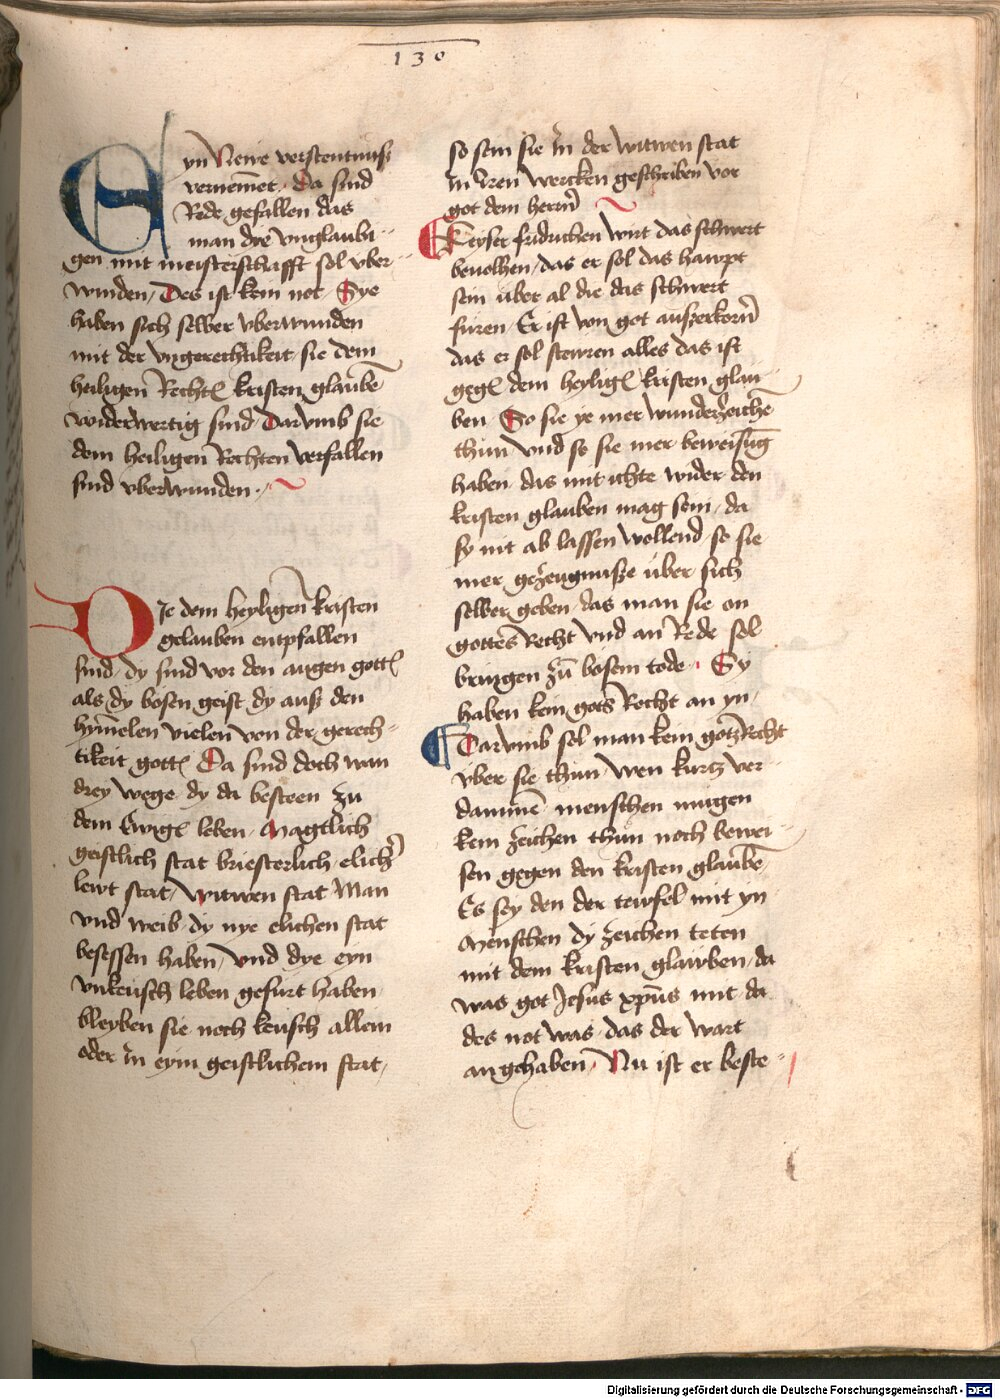 130
Eyn Neẅe verstentnuß
vernem̄et · Da sind
Rede gefallen das
man dye vnglaubi
gen mit meisterschafft sol vber
winden / Des ist kein not · Sye
haben sich selber vberwunden
mit der vngerechtikeit / sie dem
heiligen Rechtē kristen glaubē
widerwertig sind / Darvmb sie
dem heiligen Rechten verfallen
sind vberwunden ·
Die dem heyligen kristen
gelauben entpfallen
sind / dy sind vor den augen gottē
als dy bosen geist dy auß den
hym̄elen vielen von der gerech
tikeit gottē Da sind doch wan
drey wege dy da besteen zu
dem Ewigē leben / Magtlich
geistlich stat briesterlich elichʾ
lewt stat / witwen stat Man
vnd weib dy nye elichen stat
besessen haben / vnd dye eyn
vnkeusch leben gefurt haben
bleyben sie noch keusch allein
oder in eym geistlichem stat /
so sein sie in der witwen stat
in iren wercken geschriben vor
got dem herrn̄
Keyser fridrichen wirt das schwert
beuolhen / das er sol das hawpt
sein über al die das schwert
füren / Er ist von got außerkorn̄
das er sol stewren alles das ist
gegē dem heyligē kristen glau
ben / So sie ye mer wunderzeichē
thün vnd so sie mer beweisūg
haben das mit ichte wider den
kristen glauben mag sein / da
sy nit ab lassen wollend so sie
mer gezeugnuße über sich
selber geben / das man sie on
gottes Recht vnd an Rede sol
bringen zū bosem tode · Sy
haben kein gots Recht an yn /
Darvmb sol man kein gotz Recht
vber sie thün / wen kurtz ver
damme᷑ menschen mügen
kein zeichen thün noch bewei
sen gegen den kristen glaubē
Es sey den der tewfel mit yn
Menschen dy zeichen teten
mit dem kristen glawben / da
was got Jesus xp̄us mit da
des not was / das der wart
angehaben / Nu ist er beste
Digitalisierung gefördert durch die Deutsche Forschungsgemeinschaft - DFG